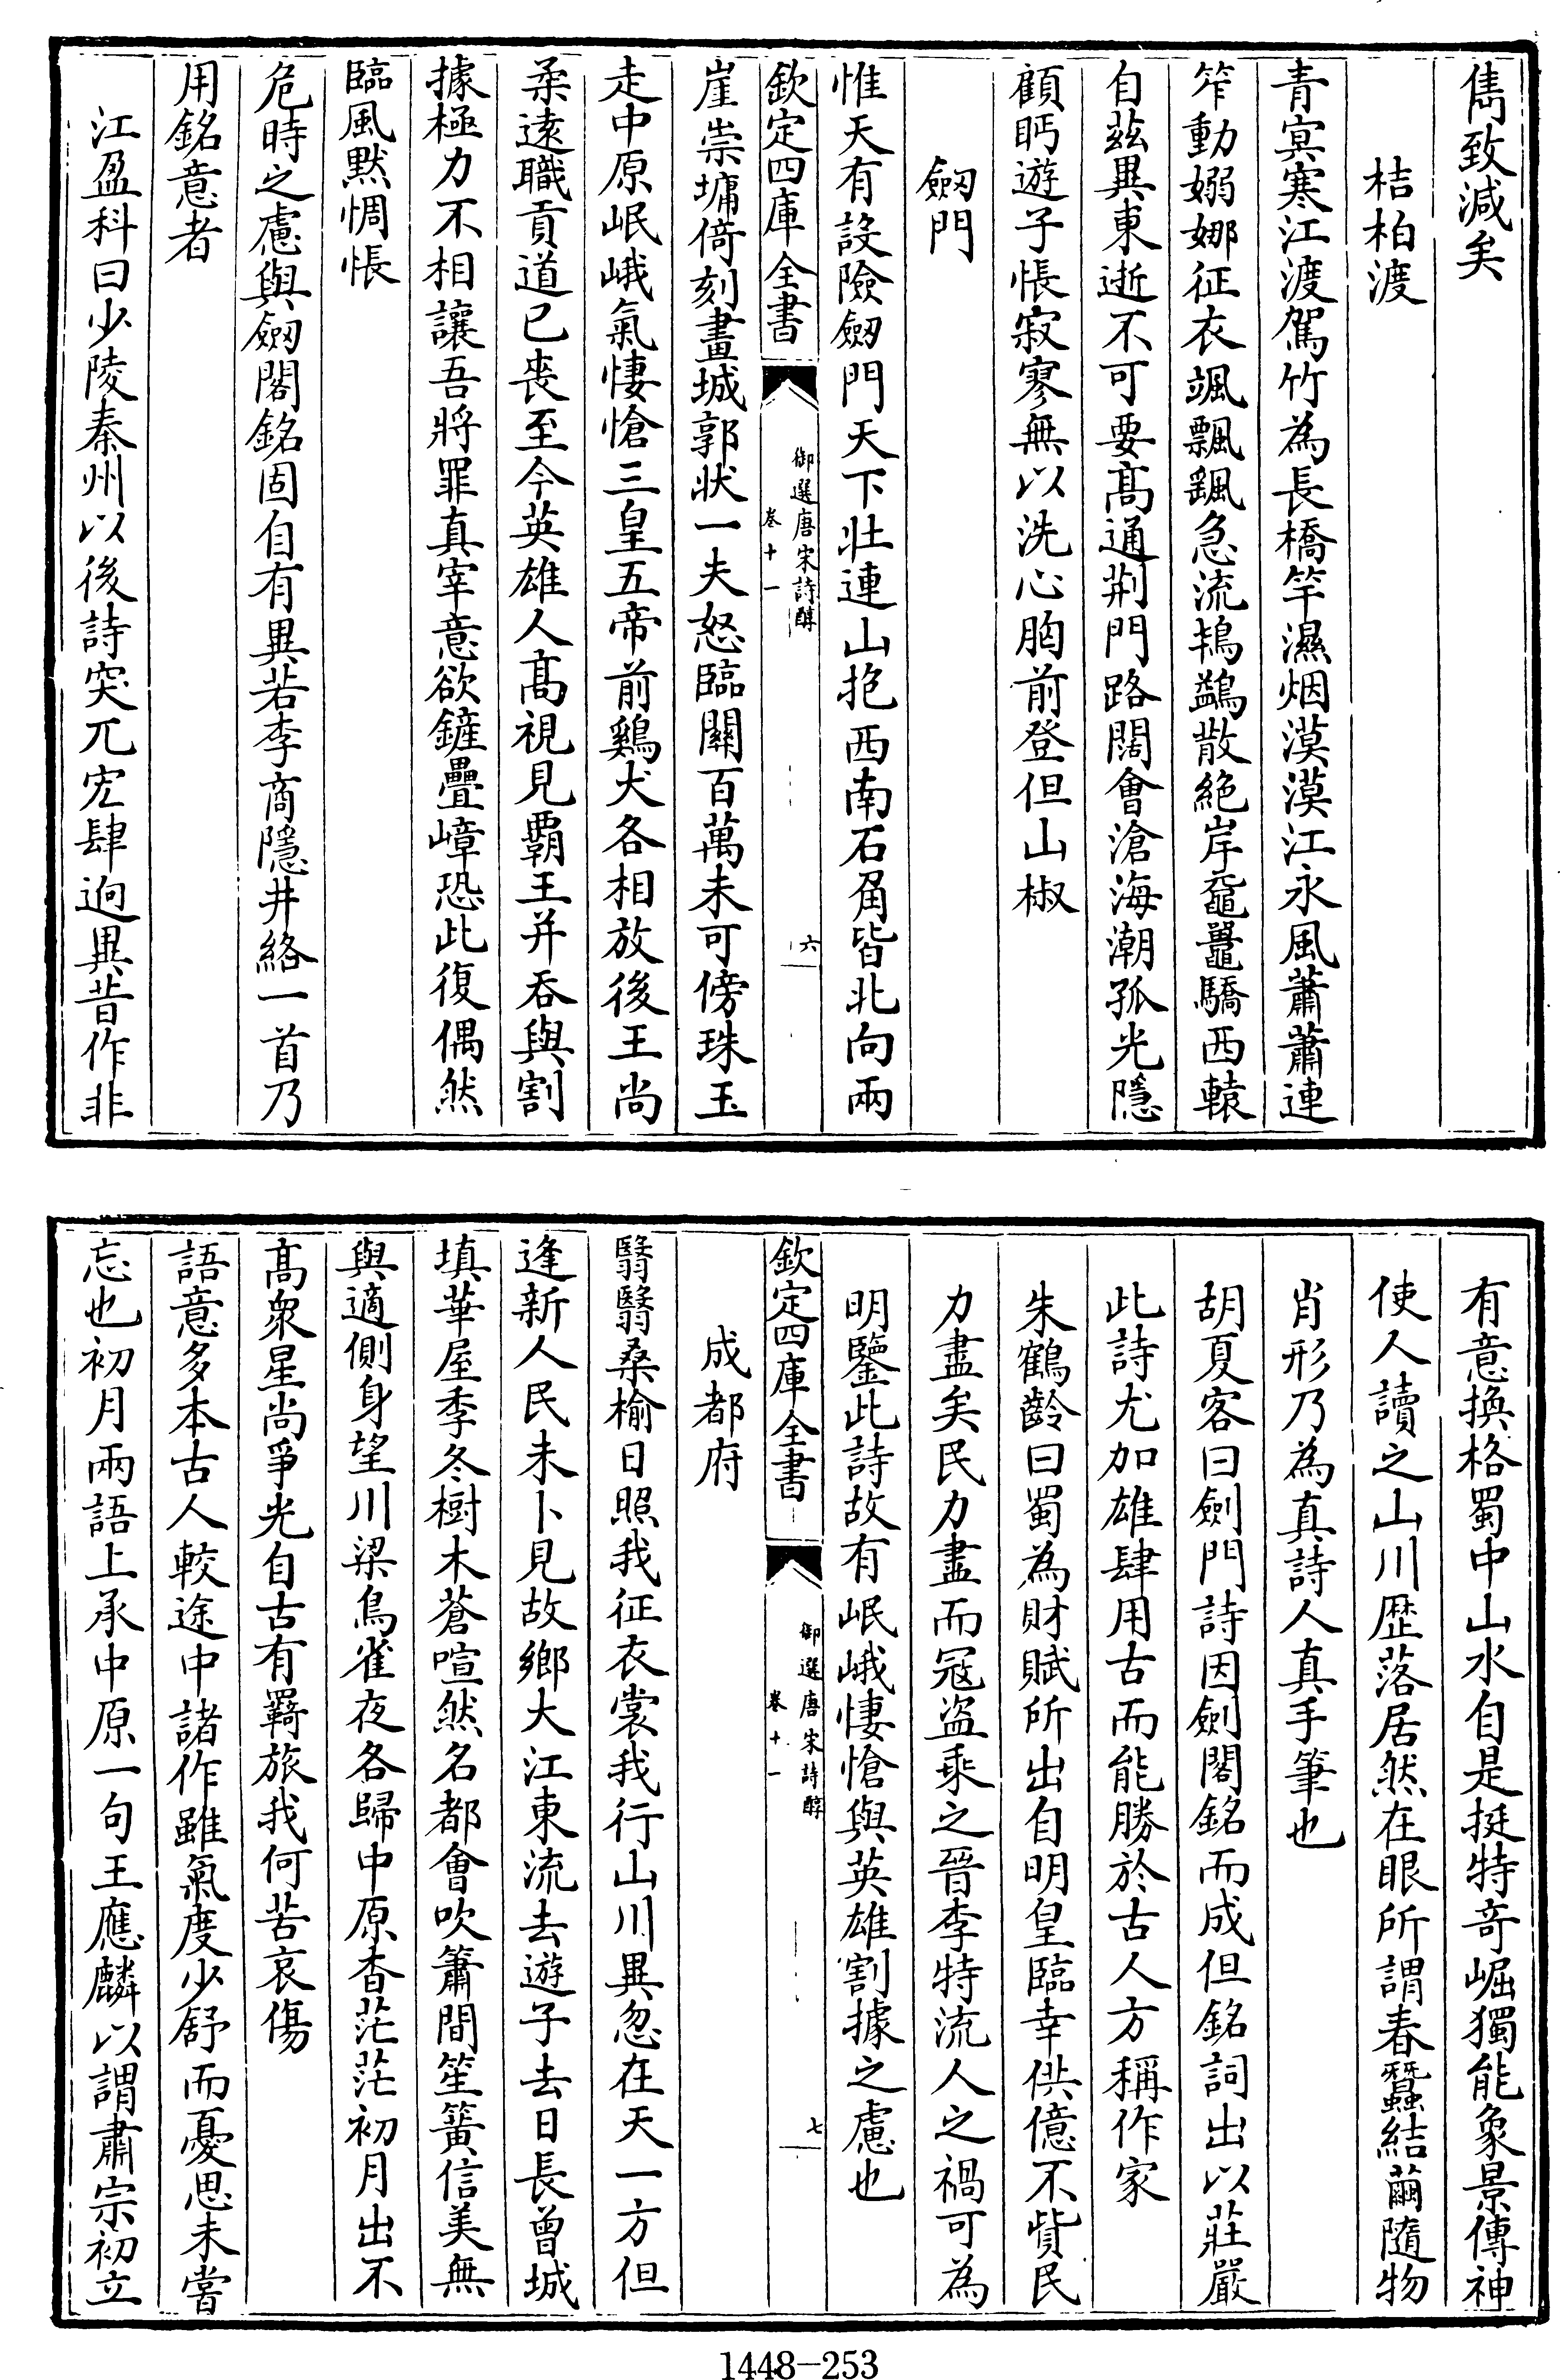 雋致減矣
桔柏渡
青㝠寒江渡駕竹為長橋竿濕烟漠漠江永風蕭蕭連
笮動嫋娜征衣颯飄颻急流鴇鷁散絶岸黿鼉驕西轅
自茲異東逝不可要髙通荆門路闊會滄海潮孤光隱
顧眄遊子悵寂寥無以洗心胸前登但山椒
劒門
惟天有設險劒門天下壯連山抱西南石角皆北向兩
欽定四庫全書
御選唐宋詩醇
卷十一
六
崖崇墉倚刻畫城郭狀一夫怒臨關百萬未可傍珠玉
走中原岷峨氣悽愴三皇五帝前鷄犬各相放後王尚
柔逺職貢道已喪至今英雄人髙視見覇王并吞與割
據極力不相讓吾將罪真宰意欲鏟疊嶂恐此復偶然
臨風默惆悵
危時之慮與劒閣銘固自有異若李商隱井絡一首乃
用銘意者
江盈科曰少陵秦州以後詩突兀宏肆逈異昔作非
有意換格蜀中山水自是挺特竒崛獨能象景傳神
使人讀之山川歴落居然在眼所謂春蠶結繭隨物
肖形乃為真詩人真手筆也
胡夏客曰劍門詩因劍閣銘而成但銘詞出以莊嚴
此詩尤加雄肆用古而能勝於古人方稱作家
朱鶴齡曰蜀為財賦所出自明皇臨幸供億不貲民
力盡矣民力盡而冦盗乘之晉李特流人之禍可為
明鑒此詩故有岷峨悽愴與英雄割據之慮也
欽定四庫全書
御選唐宋詩醇
卷十一
七
成都府
翳翳桑榆日照我征衣裳我行山川異忽在天一方但
逢新人民未卜見故鄉大江東流去遊子去日長曾城
填華屋季冬樹木蒼喧然名都會吹簫間笙簧信美無
與適側身望川梁鳥雀夜各歸中原杳茫茫初月出不
髙衆星尚爭光自古有羇旅我何苦哀傷
語意多本古人較途中諸作雖氣度少舒而憂思未嘗
忘也初月兩語上承中原一句王應麟以謂肅宗初立
1448-253